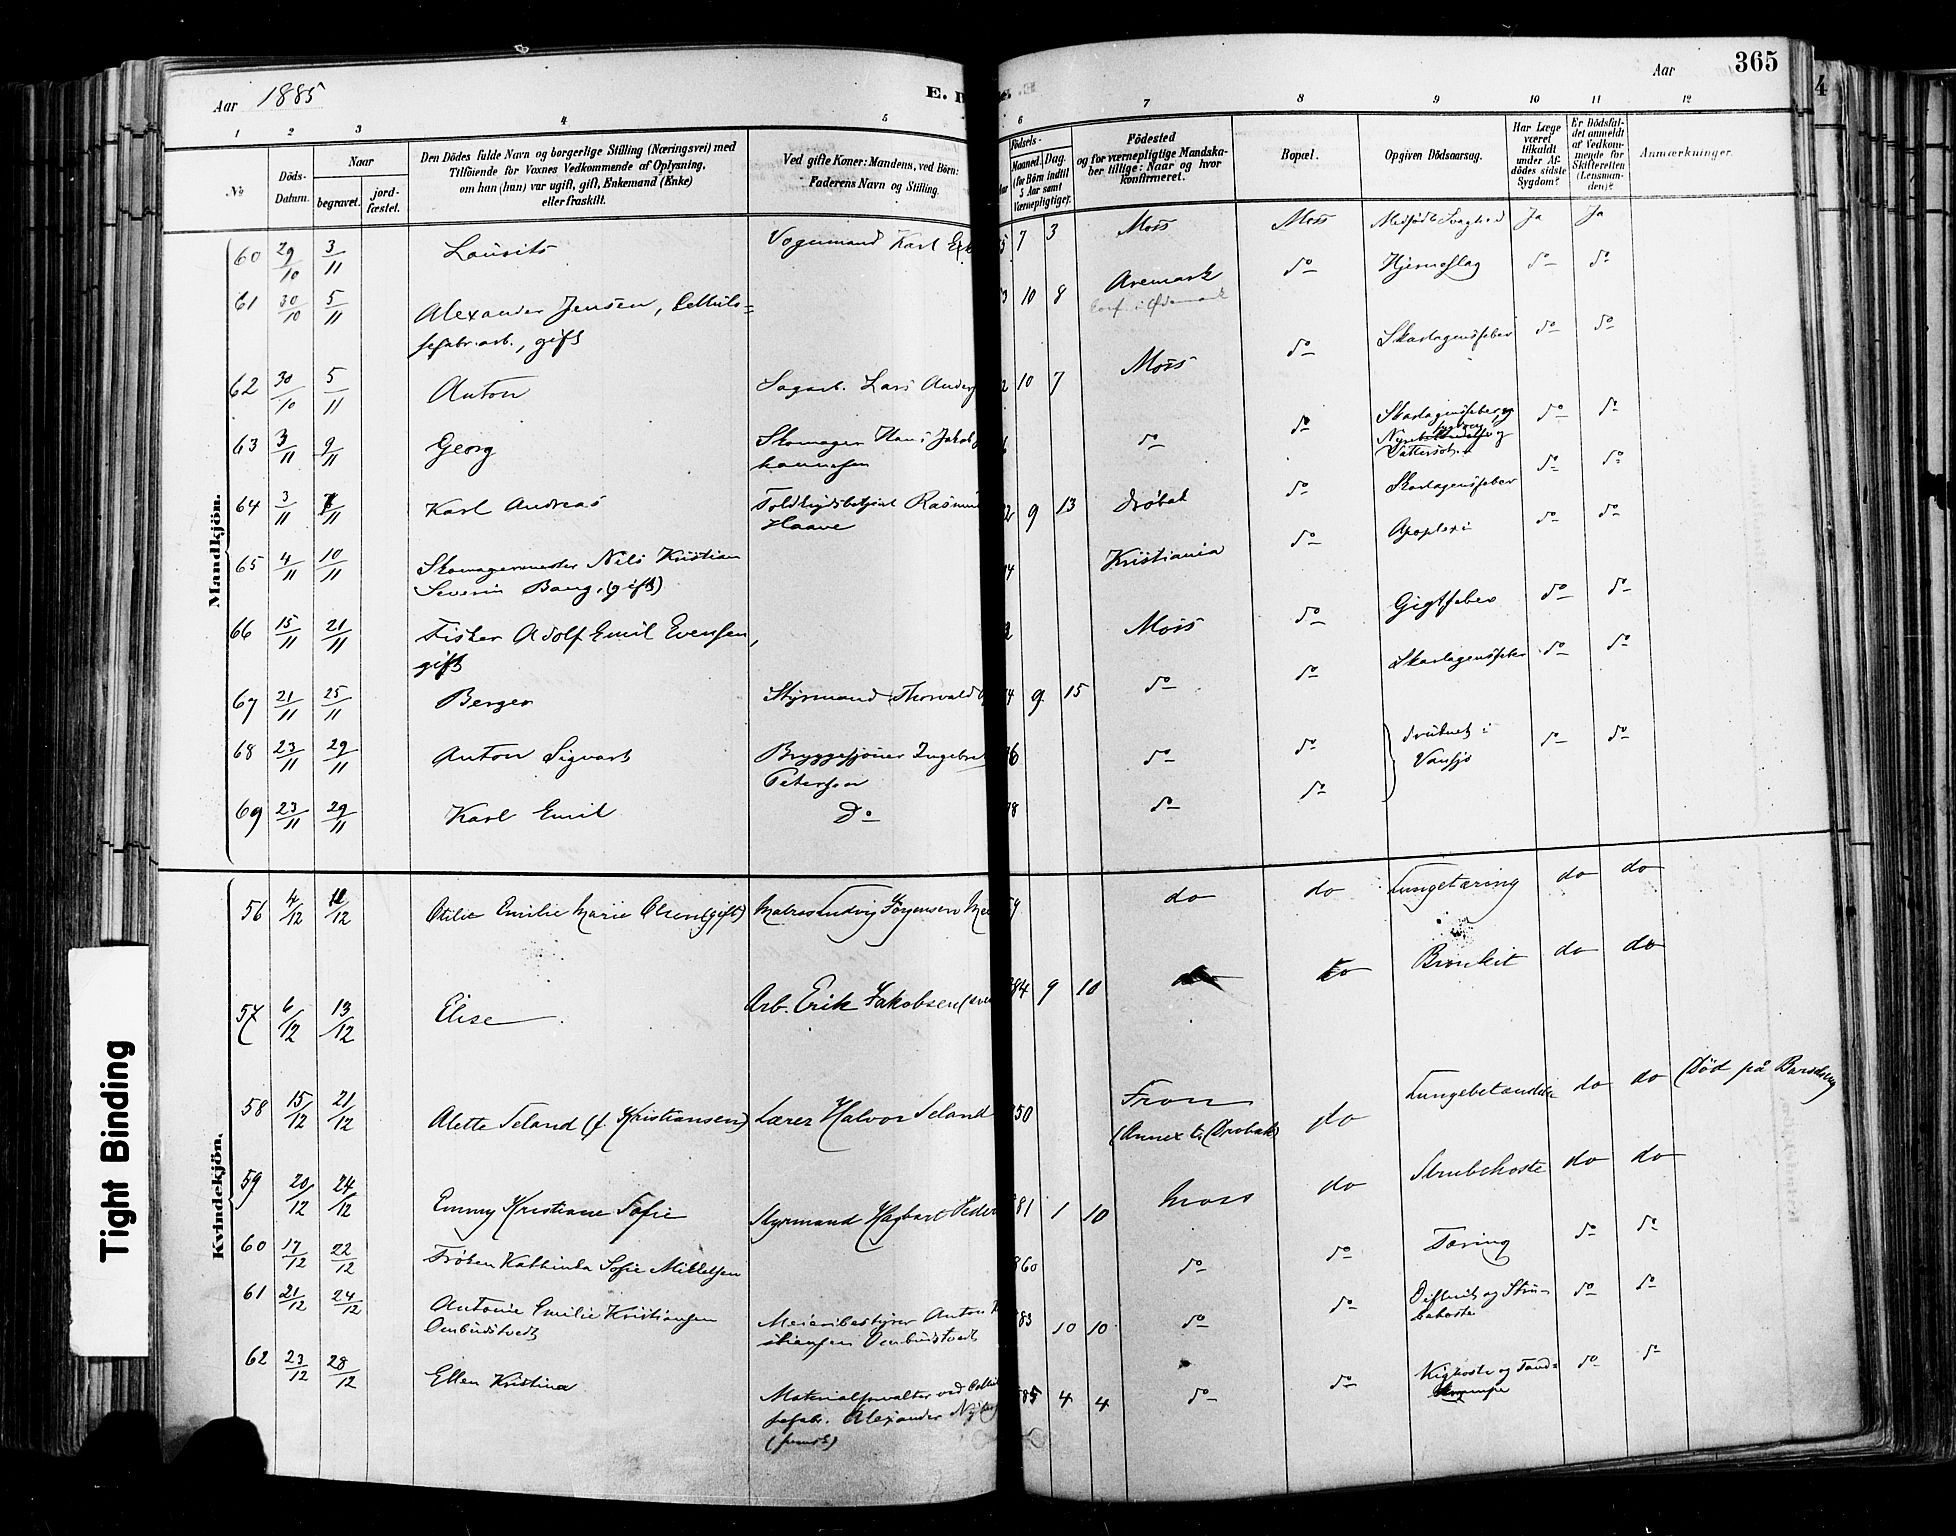 365
4
Aar 1885
E. D
Aar
1 2 3 4 5 6 7 8 9 10 11 12
No
Döds-
Datum.
Naar
begravet.
jord-
fæstet.
Den Dödes fulde Navn og borgerlige Stilling (Næringsvei) med
Tilföiende for Voxnes Vedkommende af Oplysning,
om han (hun) var ugift, gift, Enkemand (Enke)
eller fraskilt.
Ved gifte Koner: Mandens, ved Börn:
Faderens Navn og Stilling.
Födsels-
Maaned. Dag.
(for Börn indtil
5 Aar samt
Værnepligtige).
Födested
og for værnepligtige Mandska-
ber tillige: Naar og hvor
konfirmeret.
Bopæl.
Opgiven Dödsaarsag.
Har Læge
været
tilkaldt
under Af-
dödes sidste
Sygdom?
Er Dödsfal-
det anmeldt
af Vedkom-
mende for
Skifteretten
(Lensman-
den)?
Anmærkninger.
Mandkjön.
60 29/10 3/11 Lausits Vognmand Karl 5 7 3 Moss Moss Medfødt Svaghed Ja Ja
61 30/10 5/11 Alexander Jensen, Cellulo=
sefabr. arb., gift 3 10 8 Aremark
Conf. i Ødemark do Hjerneslag do do
62 30/10 5/11 Anton Sagarb. Lars Anders 2 10 7 Moss do Skarlagensfeber do do
63 3/11 9/11 Georg Skomager Hans Jakob
hannesen 6 do do Skarlagensfeber og
Vattersot do do
64 3/11 /11 Karl Andreas Rasmus
Haave 2 9 13 Drøbak do Skarlagensfeber do do
65 4/11 10/11 Skomagermester Nils Kristian
Severin Bang, (gift) 4 Kristiania do Apoplexi do do
66 15/11 21/11 Fisker Adolf Emil Evensen,
gift 2 Moss do Gigtfeber do do
67 21/11 25/11 Berger Styrmand Thorvald 4 9 15 do do Skarlagensfeber do do
68 23/11 29/11 Anton Sigvart Bryggesjouer Ingebret
Petersen 6 do do Druknet i
Vansjø do do
69 23/11 29/11 Karl Emil Do 8 do do
Kvindekjön.
56 4/12 11/12 Otilie Emilie Marie Olsen (gift) Matros Ludvig Jørgensen 9 do do Lungetæring do do
57 6/12 13/12 Elise Arb. Erik Jakobsen 84 9 10 do do Bronkit do do
58 15/12 21/12 Alette Seland (f. Kristiansen) Lærer Halvor Seland 50 Fron
(Annex t. Drøbak) do Lungebetændelse do do (Død på Barselseng
59 20/12 24/12 Emmy Kristiane Sofie Styrmand Hagbart Peder 81 1 10 Moss do Strubehoste do do
60 17/12 22/12 Frøken Kathinka Sofie Mikkelsen 860 do do Tæring do do
61 21/12 24/12 Antonie Emilie Kristiansen
Ombudstvedt Meieribestyrer Anton
stiansen Ombudstvedt 83 10 10 do do Difterit og Stru-
behoste do do
62 23/12 28/12 Ellen Kristina Materialforvalter ved Cellu
sefabr. Alexander
(svensk) 85 4 4 do do Kighoste og Tand=
krampe do do
Tight Binding